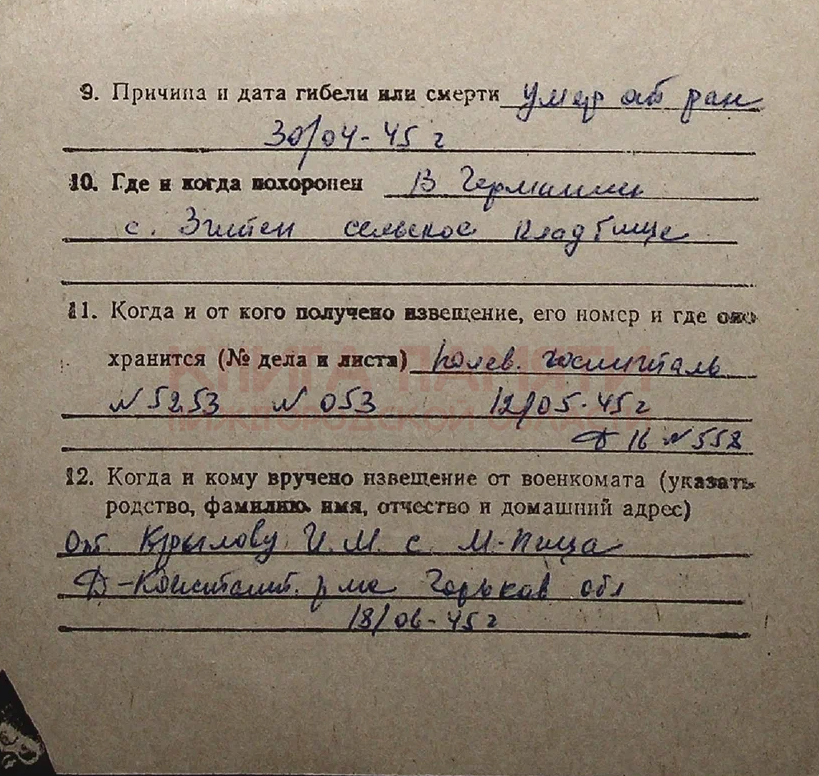 9. Причина и дата гибели или смерти умер от ран
30/04-45 г
10. Где и когда похоронен В Германии
с. Зглтен сельское кладбище
11. Когда и от кого получено извещение, его номер и где оно
хранится (№ дела и листа) полев. госпиталь
КНИГА ПАМЯТИ
N 5253 N 053 12/05-45 г
НИЖЕГОРОДСКОЙ ОБЛАСТИ
Д 16 N 558
12. Когда и кому вручено извещение от военкомата (указать
родство, фамилию, имя, отчество и домашний адрес)
От. Крылову И. М. с М-Пица
Д-Констант. р-на Горьков обл
18/06-45 г